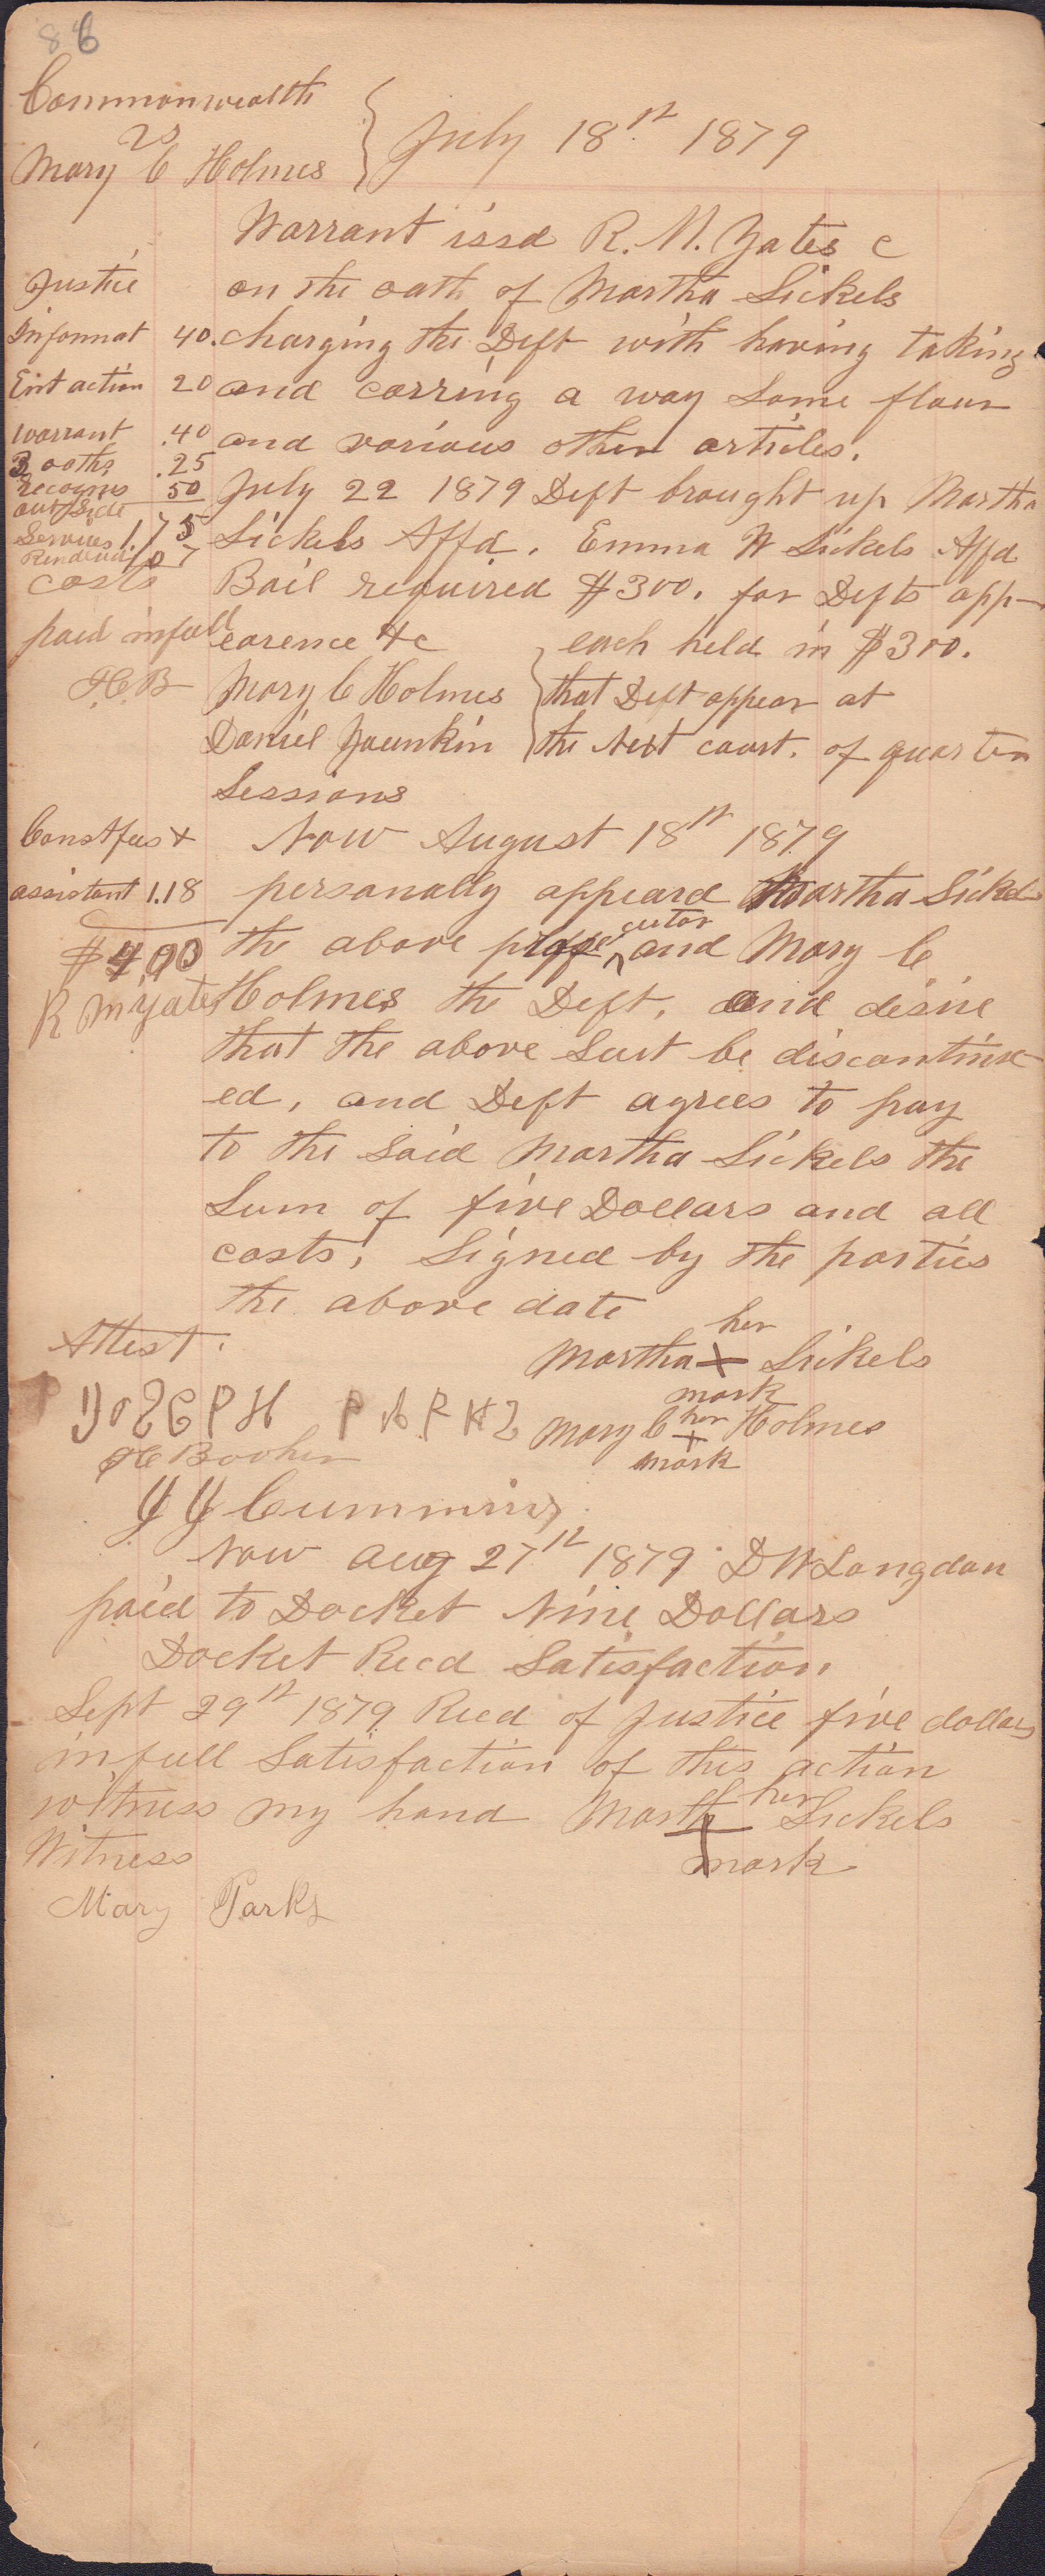 86
Commonwealth
vs
Mary C Holmes
July 18st 1879
Warrant issd R. M. Yates C
Justice on the oath of Martha Sickels
Informat 40. charging the Deft with having taking
Ent action 20 and carring a way some flour
warrant .40 and various other articles.
3 oaths .25
recognis 50 July 22 1879 Deft brought up Martha
out side
Services 1.75 Sickels Affd. Emma W Sickels Affd
Rendered
costs Bail required $300. for Defts app-
paid in full earence &c each held in $300.
H.B Mary C Holmes that Deft appear at
Daniel Younkin the Next court. of quarter
Sessions
Const fees & Now August 18st 1879
assistant 1.18 personally appeard Martha Sickels
cutor
the above prose and Mary C
R M Yates Holmes the Deft, and desire
that the above Suit be discontinu-
ed, and Deft agrees to pay
to the said Martha Sickels the
Sum of five Dollars and all
costs, Signed by the parties
the above date
Attest. her
Martha X Sickels
mark
JOSEPH PARKS Mary C her Holmes
H Booher X mark
J J Cummins
Now Aug 27st 1879 D W Langdon
paid to Docket Nine Dollars
Docket Recd Satisfaction
Sept 29st 1879 Recd of Justice five dollars
in full Satisfaction of this action
her
witness my hand Marth X Sickels
Witness mark
Mary Parks